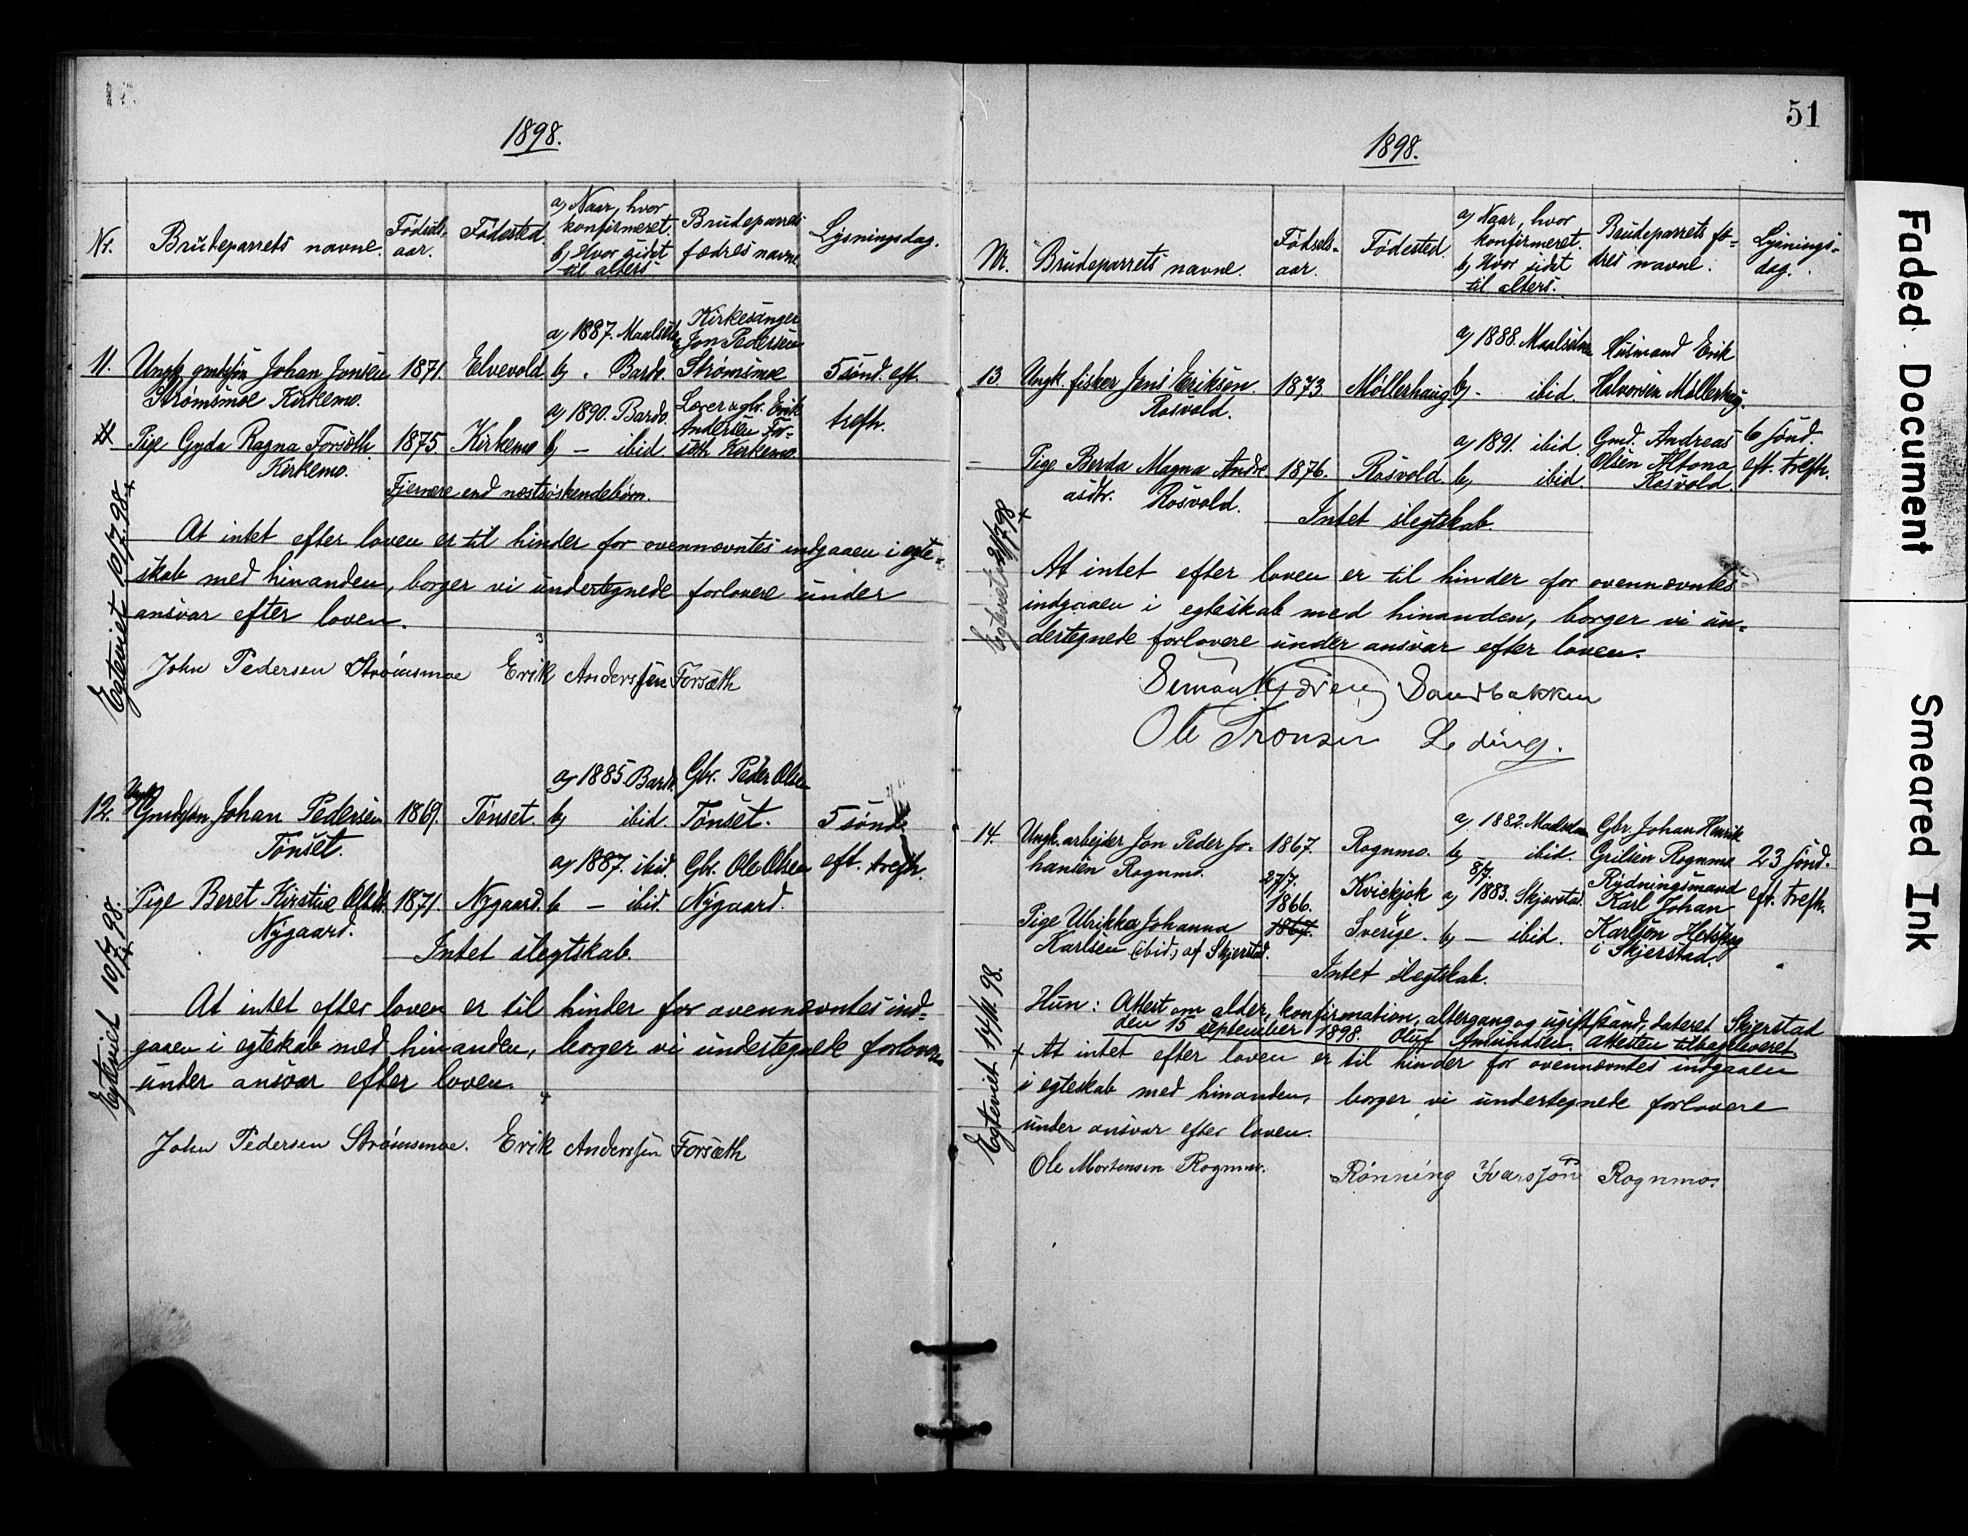 1898.
Nr. Brudeparrets navne. Fødsels aar. Fødested. a) Naar, hvor konfirmeret. b) Hvor sidst til alters. Brudeparrets fædres navne. Lysningsdag.
a) 1887. Maalselv Kirkesanger
Jon Pedersen
11. Ungk. gmdsøn Johan Jonsen 1871. Elvevold b) Bardo. Strømsmoe 5 sønd. eft.
Strømsmoe Kirkemo.
a) 1890. Bardo. Lærer & gbr. Erik
Andersen For- trefh.
Pige Gyda Ragna Forsæth 1875 Kirkemo b) — ibid sæth Kirkemo.
Kirkemo.
Fjernere end næstsøskendebørn.
At intet efter loven er til hinder for ovennævntes indgaaen i egte-
skab med hinanden, borger vi undertegnede forlovere under
ansvar efter loven.
John Pedersen Strömsmoe Erik Anderssen Forsæth
Egteviet 10/7. 98. +
a) 1885. Bardo. Gbr. Peder Olsen
12. Ungk. Gmdsøn Johan Pedersen 1869. Tønset. b) ibid. Tønset. 5 sønd.
Tønset.
a) 1887. ibid. Gbr. Ole Olsen eft. trefh.
Pige Beret Kirstine Olsdt. 1871. Nygaard. b — ibid. Nygaard.
Nygaard.
Intet slegtskab.
At intet efter loven er til hinder for ovennævntes ind-
gaaen i egteskab med hinanden, borger vi undertegnede forlovere
under ansvar efter loven.
John Pedersen Strömsmoe. Erik Anderssen Forsæth
Egteviet 10/7. 98.
51
1898.
Nr. Brudeparrets navne. Fødsels- aar. Fødested. a) Naar, hvor konfirmeret. b) Hvor sidst til alters. Brudeparrets fæ- dres navne. Lysnings- dag.
a) 1888. Maalselven Husmand Erik
13 Ungk. fisker Jens Eriksen 1873. Møllerhaug b) - ibid. Halvorsen Møllerhug.
Rosvold.
a) 1891. ibid. Gmd. Andreas 6 sønd.
Pige Berda Magna Andre- 1876. Rosvold. b) ibid. Olsen Altona eft. trefh.
asdtr. Rosvold. Rosvold.
Intet slegtskab.
At intet efter loven er til hinder for ovennævntes
indgaaen i egteskab med hinanden, borger vi un-
dertegnede forlovere under ansvar efter loven.
Sandbakken
Ole Tronsen Leding.
a) 1882. Maalselven Gbr. Johan Henrik
14. Ungk. arbejder Jon Peder Jo- 1867. Rognmo. b) ibid. Grilsen Rognmo 23 sønd.
hansen Rognmo. 27/7. 8/7. Rydningsmand eft. trefh.
1866. Kvickjok a) 1883. Skjerstad. Karl Johan
Pige Ulrikka Johanna 1867. Sverige. b) — ibid. Karlsen
Karlsen (ibid.) af Skjerstad. i Skjerstad.
Intet slegtskab.
Hun: Attest om alder, konfirmation, altergang og ugift stand, dateret Skjerstad
den 15 september 1898. Oluf Amundsen. Attesten tilbageleveret.
+ At intet efter loven er til hinder for ovennævntes indgaaen
i egteskab med hinanden, borger vi undertegnede forlovere
under ansvar efter loven.
Ole Mortensen Rognmo. Rönning Ivarsson Rognmo.
Faded Document
Smeared Ink